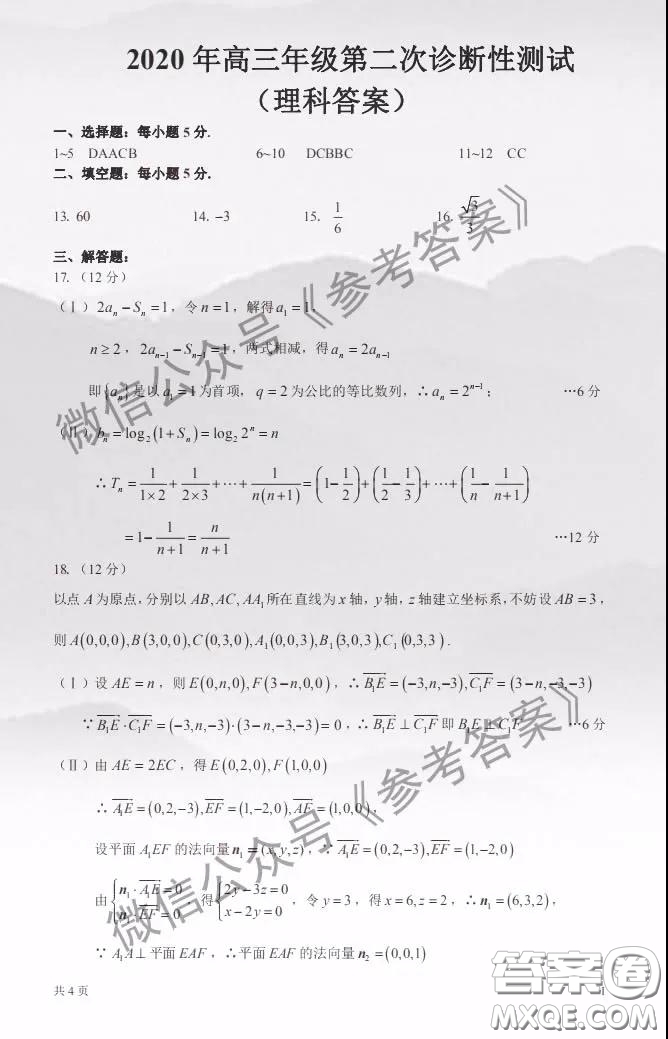 2020 年高三年级第二次诊断性测试
（理科答案）
一、选择题：每小题 5 分.
1~5 DAACB 6~10 DCBBC 11~12 CC
二、填空题：每小题 5 分.
13. 60 14. −3 15. 1/6 16. √3/3
三、解答题：
17. （12 分）
（Ⅰ）2aₙ − Sₙ = 1，令 n = 1，解得 a₁ = 1，
n ≥ 2，2aₙ₋₁ − Sₙ₋₁ = 1，两式相减，得 aₙ = 2aₙ₋₁
即{aₙ}是以 a₁ = 1 为首项，q = 2 为公比的等比数列，∴ aₙ = 2ⁿ⁻¹； …6 分
（Ⅱ）bₙ = log₂(1+Sₙ) = log₂ 2ⁿ = n
∴ Tₙ = 1/(1×2) + 1/(2×3) + ⋯ + 1/(n(n+1)) = (1 − 1/2) + (1/2 − 1/3) + ⋯ + (1/n − 1/(n+1))
= 1 − 1/(n+1) = n/(n+1) …12 分
18. （12 分）
以点 A 为原点，分别以 AB, AC, AA₁ 所在直线为 x 轴，y 轴，z 轴建立坐标系，不妨设 AB = 3，
则 A(0,0,0), B(3,0,0), C(0,3,0), A₁(0,0,3), B₁(3,0,3), C₁(0,3,3).
（Ⅰ）设 AE = n，则 E(0,n,0), F(3−n,0,0)，∴ B₁E = (−3,n,−3), C₁F = (3−n,−3,−3)
∵ B₁E · C₁F = (−3,n,−3)·(3−n,−3,−3) = 0，∴ B₁E ⊥ C₁F 即 B₁E ⊥ C₁F …6 分
（Ⅱ）由 AE = 2EC，得 E(0,2,0), F(1,0,0)
∴ A₁E = (0,2,−3), EF = (1,−2,0), AE = (1,0,0)，
设平面 A₁EF 的法向量 n₁ = (x,y,z)，∵ A₁E = (0,2,−3), EF = (1,−2,0)
由 {n₁·A₁E = 0, n₁·EF = 0，得 {2y−3z = 0, x−2y = 0，令 y = 3，得 x = 6, z = 2，∴ n₁ = (6,3,2)，
∵ A₁A ⊥ 平面 EAF，∴平面 EAF 的法向量 n₂ = (0,0,1)
共 4 页
微信公众号《参考答案》
微信公众号《参考答案》
答案卷